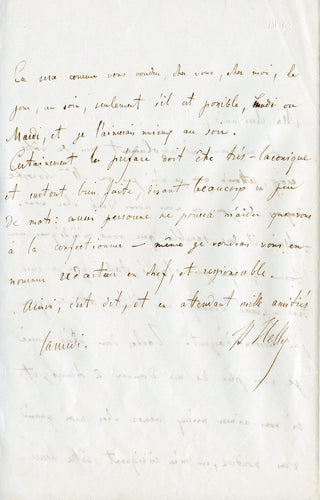 Ce sera comme vous voudrez, chez vous, chez moi, le
jour, au soir, seulement s'il est possible, Lundi ou
Mardi, et je l'aimerais mieux au soir.
Certainement la préface doit être très-laconique
et surtout bien faite, disant beaucoup en peu
de mots: aussi personne ne pourra m'aider que vous
à la confectionner — même je voudrais vous en
nommer rédacteur en chef, et responsable.
Ainsi, c'est dit, et en attendant mille amitiés
Samedi.